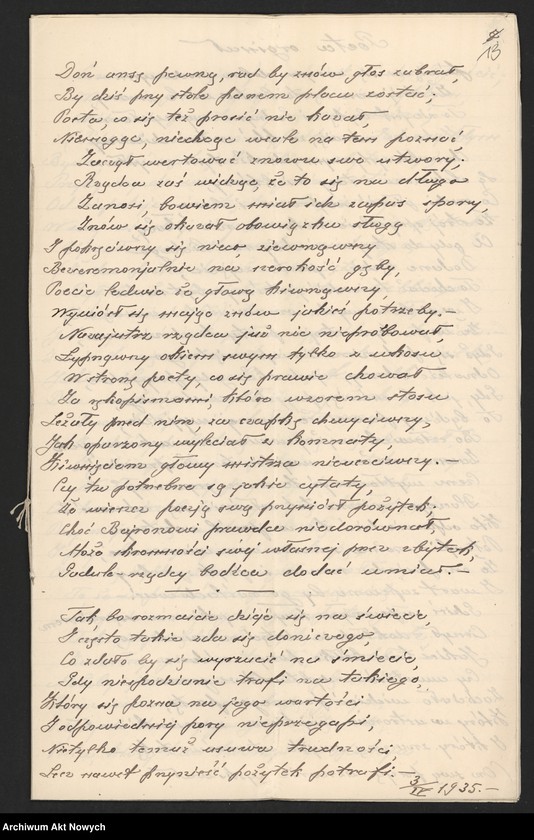 13
Doń ansą pewną, rad by znów głos zabrał,
By dziś przy stole panem placu zostać;
Poeta, co się też prosić nie kazał,
Niemogąc, niechcąc wcale na tem poznać,
Zaczął wertować znowu swe utwory;
Rządca zaś widząc, że to się na długo
Zanosi, bowiem miał ich zapas spory,
Znów się okazał obowiązku sługą
I pokrzciwszy się nieco, ziewnąwszy
Beceremonjalnie na szerokość gęby,
Poecie ledwie że głową kiwnąwszy
Wyniósł się mając znów jakieś potrzeby. —
Nazajutrz rządca już nie niepróbował,
Łypnąwszy okiem swym tylko z ukosu
W stronę poety, co się prawie chował
Za rękopismami, które wzorem stosu
Leżały pred nim za czapkę chwyciwszy,
Jak oparzony wyleciał z komnaty,
Kiwnięciem głowy mistrza nieuczciwszy. —
Czy tu potrzebne są jakie cytaty,
Że wieszcz poezją swą przyniósł pożytek,
Choć Bajronowi prawda niedorównał,
Może skromności swej własnej przez zbytek,
Jednak rządcy bodźca dodać umiał. —
Tak bo rozmaicie dzieje się na świecie,
I często takie zda się doniczego,
Co zdało by się wyrzucić na śmiecie,
Gdy niespodzianie trafi na takiego,
Który się pozna na jego wartości
I odpowiedniej pory nieprzegapi,
Nietylko temuż usuwa trudności,
Lecz nawet przynieść pożytek potrafi. —
3/IV 1935. —
Archiwum Akt Nowych